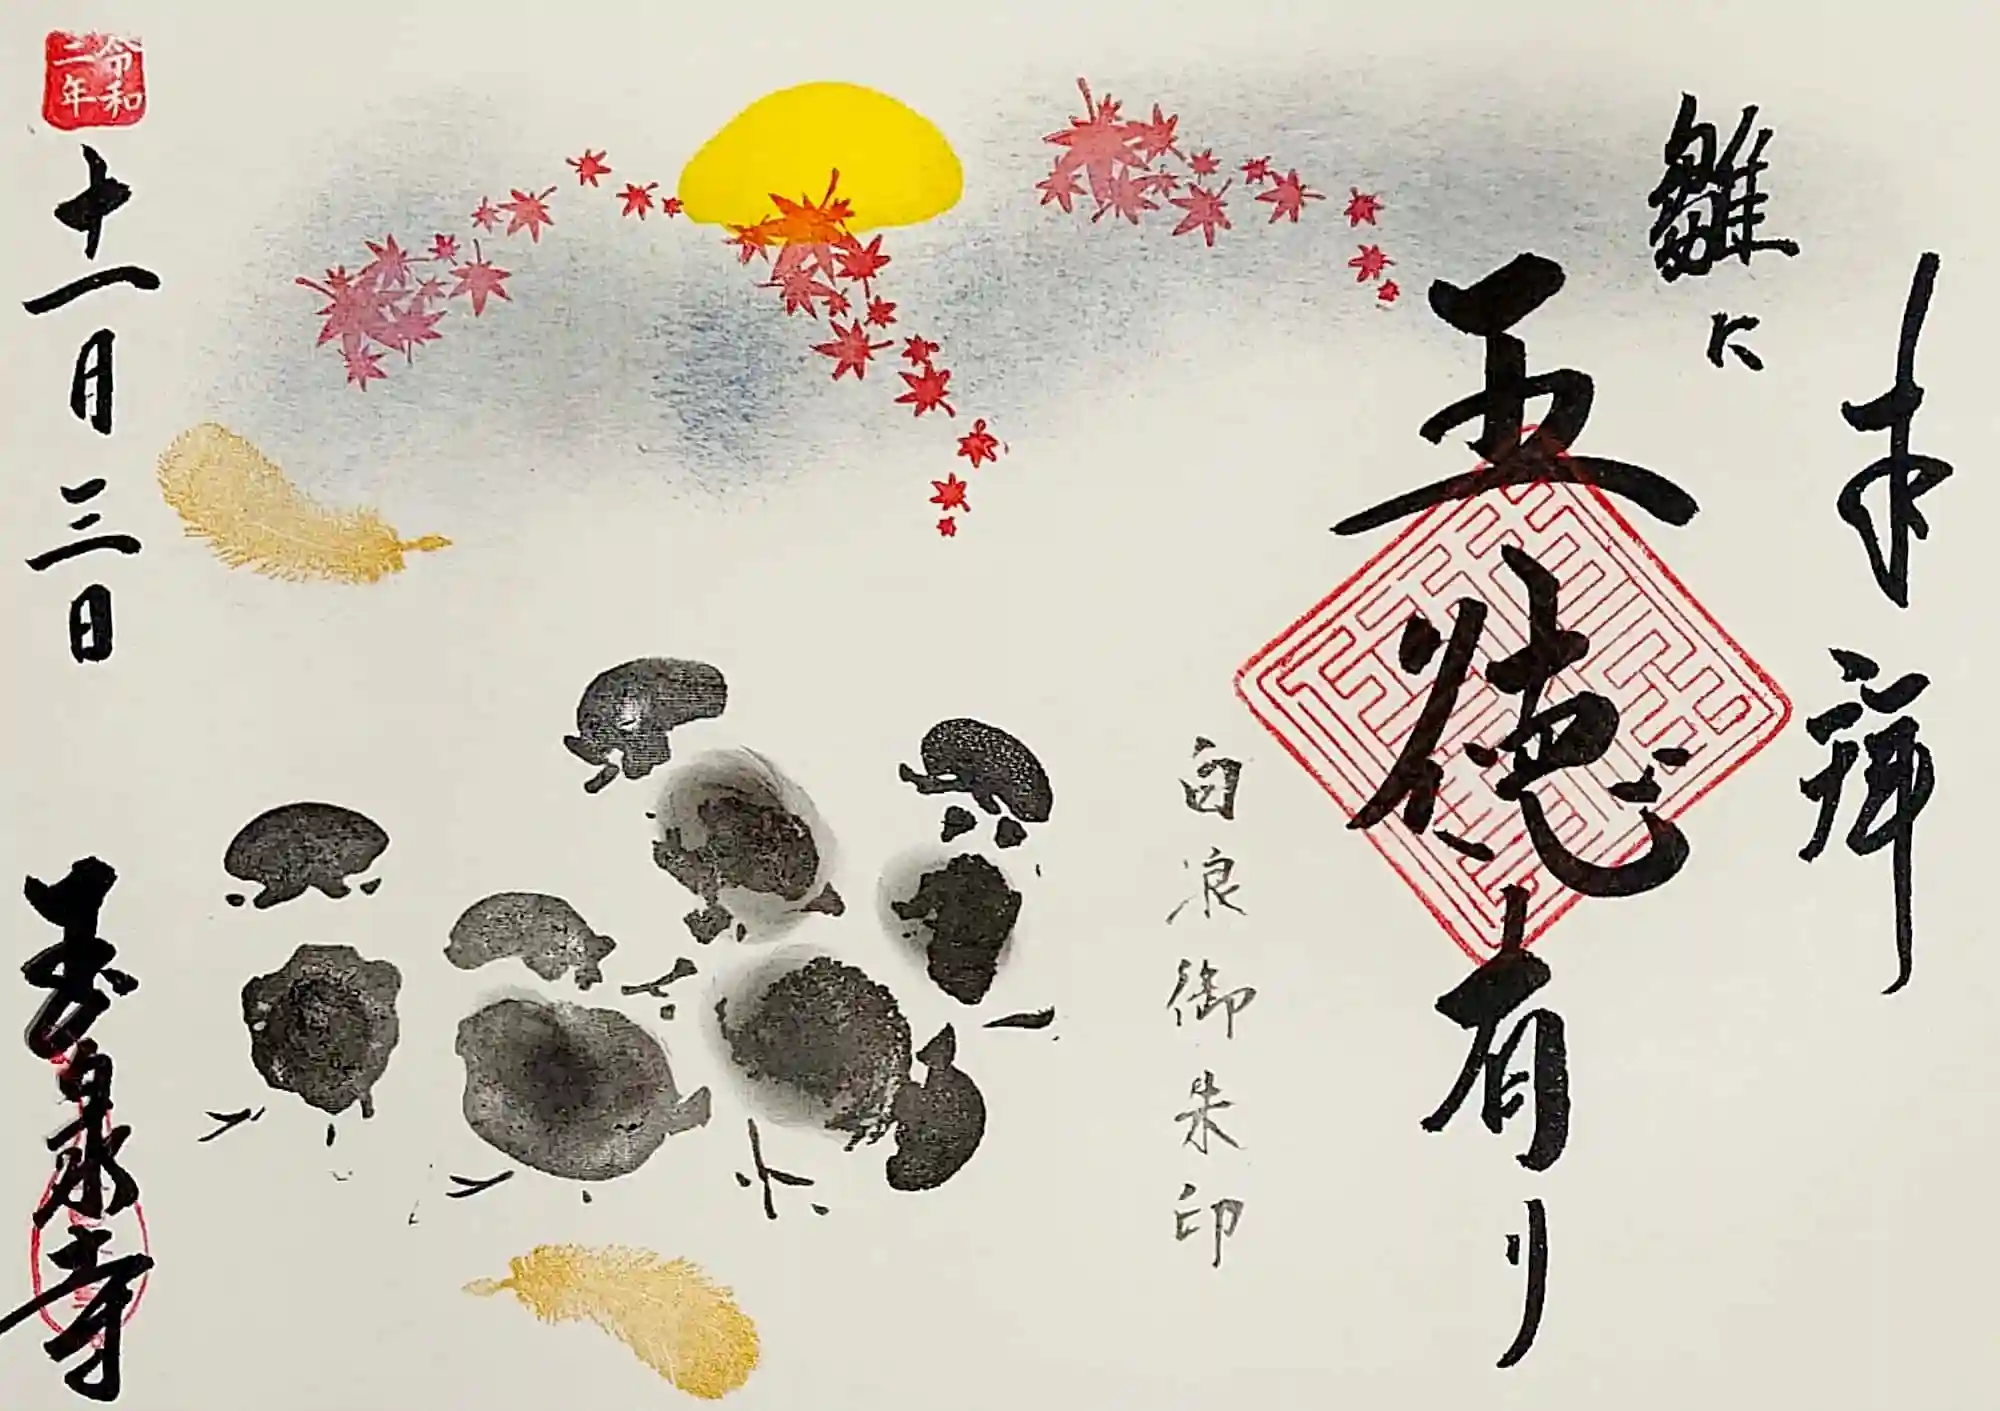 奉拝
雞に
五徳有り
白浪御朱印
令和
二年
十一月三日
玉泉寺